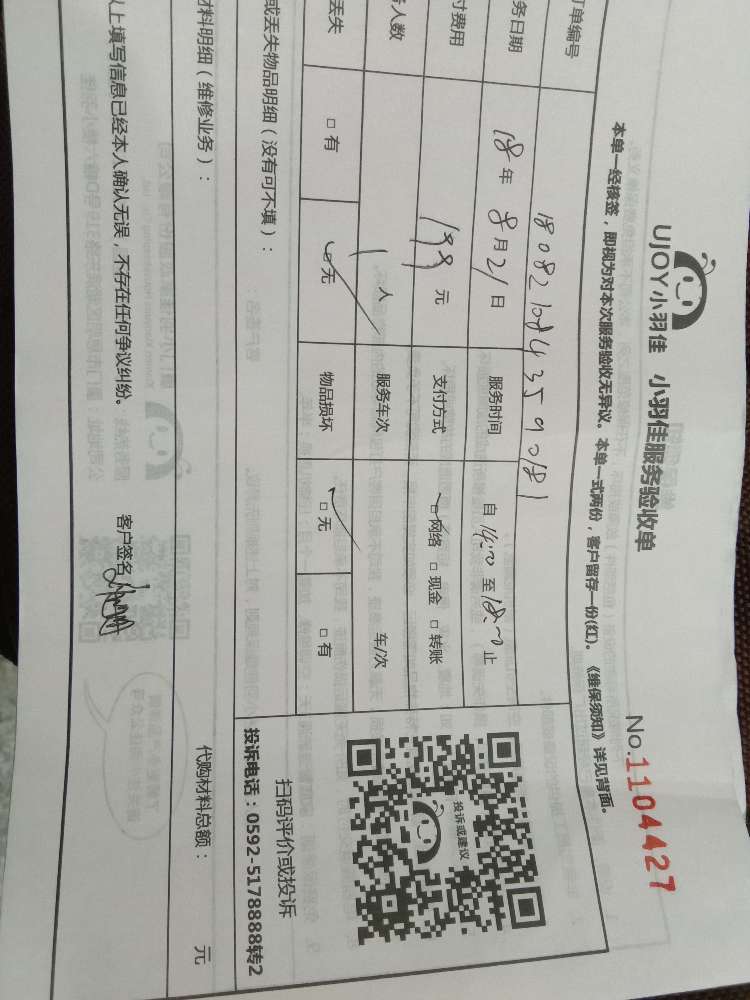 UJOY小羽佳 小羽佳服务验收单
No.1104427
本单一经核签，即视为对本次服务验收无异议。本单一式两份，客户留存一份(红)。《维保须知》详见背面。
单编号
务日期 18年8月21日 服务时间 自14:00至18:00止
付费用 199元 支付方式 □网络 □现金 □转账
人数 1人 服务车次 车/次
丢失 □有 □无 物品损坏 □无 □有
投诉或建议
扫码评价或投诉
投诉电话：0592-5178888转2
或丢失物品明细（没有可不填）：
材料明细（维修业务）： 代购材料总额： 元
以上填写信息已经本人确认无误，不存在任何争议纠纷。 客户签名